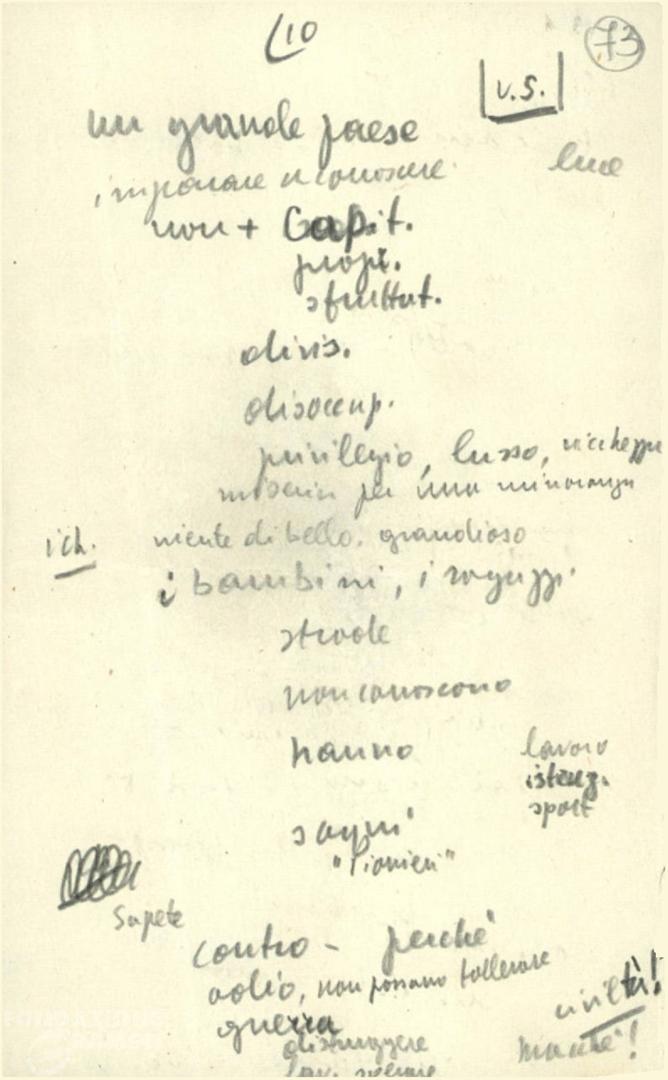 10
73
U.S.
un grande paese
imparare a conoscere
luce
non + Capit.
propr.
sfruttat.
divis.
disoccup.
privilegio, lusso, ricchezza
miseria per una minoranza
niente di bello. grandioso
i bambini, i ragazzi
strade
non conoscono
hanno
lavoro
istruz.
sport
sogni
"Pionieri"
Sapete
contro - perché
odio, non possono tollerare
guerra
civiltà!
distruggere
lav.